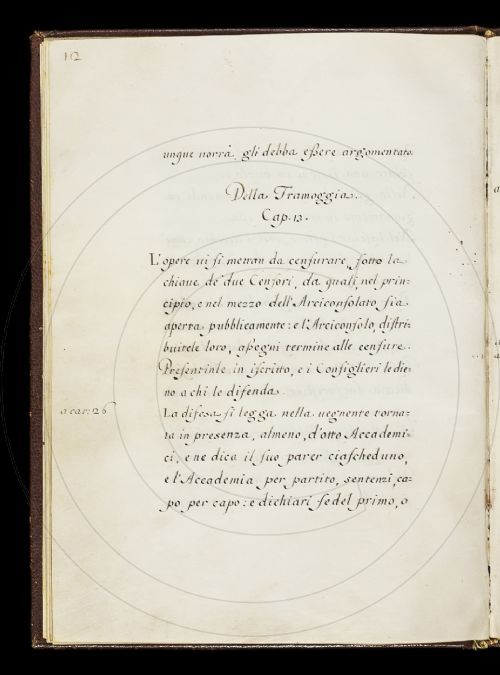 112
unque uorrà, gli debba eſsere argomentato.
Della Tramoggia.
Cap. 13.
L'opere ui si mettan da cenſurare, ſotto la
chiaue de' due Cenſori, da quali, nel prin:
cipio, e nel mezzo dell'Arciconſolato ſia
aperta pubblicamente: e l'Arciconſolo, diſtri:
buitele loro, aſsegni termine alle cenſure.
Preſentinle in iſcritto, e i Conſiglieri le die:
no a chi le difenda.
a car: 26
La difesa ſi legga nella uegnente torna:
ta in presenza, almeno, d'otto Accademi:
ci, e ne dica il ſuo parer ciaſcheduno,
e l'Accademia per partito, sentenzi, ca:
po per capo: e dichiari ſe del primo, o